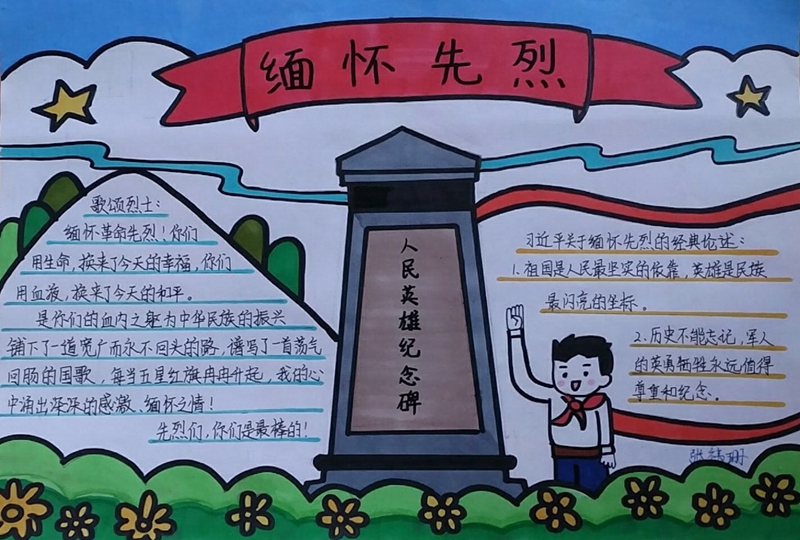 缅怀先烈
歌颂烈士：
缅怀革命先烈！你们
用生命，换来了今天的幸福，你们
用血液，换来了今天的和平。
是你们的血肉之躯为中华民族的振兴
铺下了一道宽广而永不回头的路，谱写了一首荡气
回肠的国歌，每当五星红旗冉冉升起，我的心
中涌出深深的感激、缅怀之情！
先烈们，你们是最棒的！
人民英雄纪念碑
习近平关于缅怀先烈的经典论述：
1.祖国是人民最坚实的依靠，英雄是民族
最闪亮的坐标。
2.历史不能忘记，军人
的英勇牺牲永远值得
尊重和纪念。